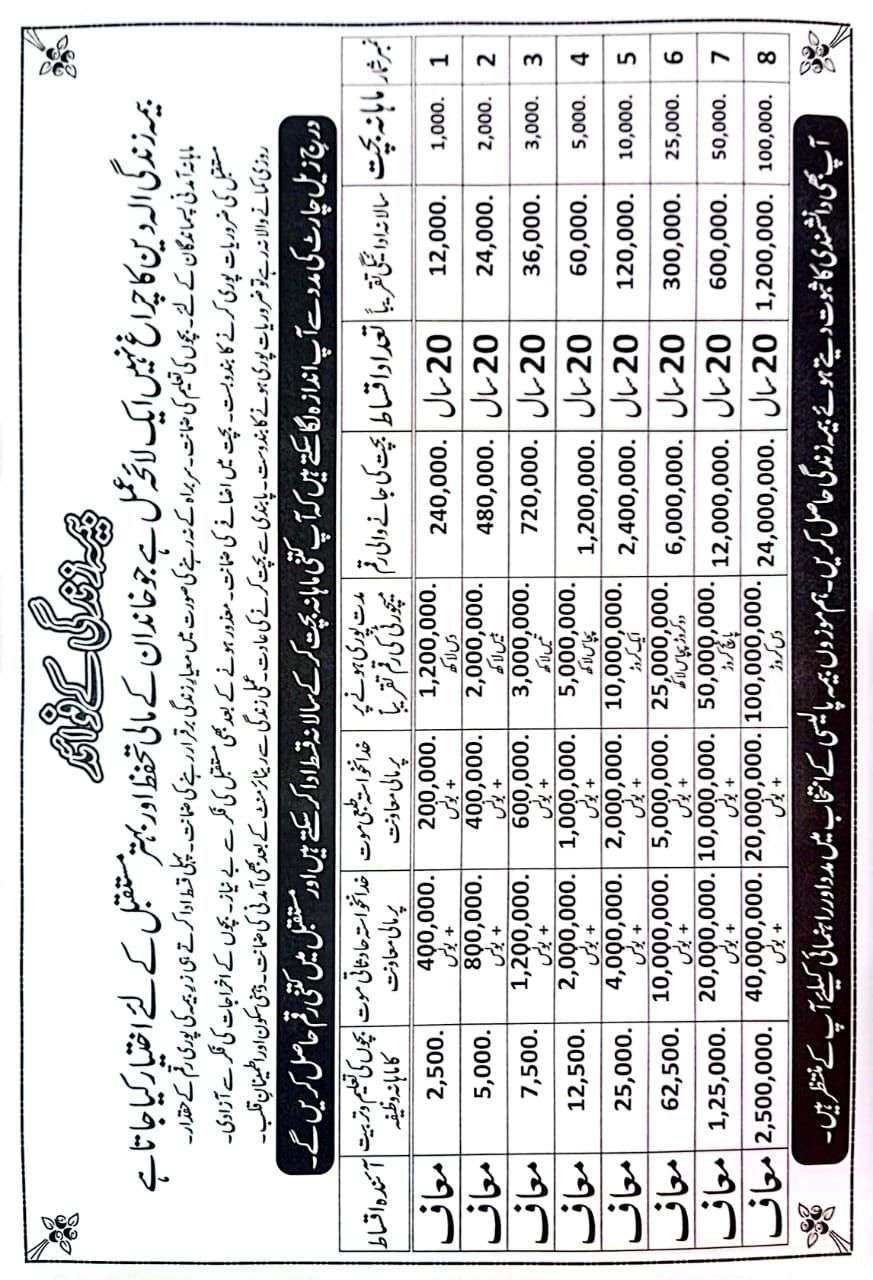 بیمہ زندگی کے فوائد
بیمہ زندگی الہ دین کا چراغ نہیں ایک لائحہ عمل ہے جو خاندان کے مالی تحفظ اور بہتر مستقبل کے لئے اختیار کیا جاتا ہے
ماہانہ آمدنی پسماندگان کے لئے۔ بچوں کی تعلیم کی ضمانت۔ سربراہ کے نہ رہنے کی صورت میں معیار زندگی برقرار رہنے کی ضمانت۔ پہلی قسط ادا کرتے ہی زر بیمہ کی پوری رقم کے حقدار۔
مستقبل کی ضروریات پوری کرنے کا بندوبست۔ بچت میں اضافے کی ضمانت۔ معذور ہونے کے بعد بھی مستقبل کی فکر سے بے نیاز۔ بچوں کے اخراجات کی فکر سے آزادی۔
روزی کمانے والا نہ رہے تو ضروریات پوری ہونے کا بندوبست۔ پابندی سے بچت کرنے کی عادت۔ عملی زندگی سے ریٹائرمنٹ کے بعد بھی آمدنی کی ضمانت۔ ذہنی سکون اور اطمینان قلب۔
درج زیل چارٹ کی مدد سے آپ اندازہ لگا سکتے ہیں کہ آپ کتنی ماہانہ بچت کر کے سالانہ قسط ادا کر سکتے ہیں اور مستقبل میں کتنی رقم حاصل کریں گے۔
نمبر شمار ماہانہ بچت سالانہ ادائیگی تقریباً تعداد اقساط بچت کی جانے والی رقم مدت پوری ہونے پر میچورٹی کی رقم تقریباً خدانخواستہ طبعی موت پر مالی معاونت خدانخواستہ حادثاتی موت پر مالی معاونت بچوں کی تعلیم و تربیت کا ماہانہ وظیفہ آئندہ اقساط
1 1,000. 12,000. 20 سال 240,000. 1,200,000. دس لاکھ 200,000. + بونس 400,000. + بونس 2,500. معاف
2 2,000. 24,000. 20 سال 480,000. 2,000,000. بیس لاکھ 400,000. + بونس 800,000. + بونس 5,000. معاف
3 3,000. 36,000. 20 سال 720,000. 3,000,000. تیس لاکھ 600,000. + بونس 1,200,000. + بونس 7,500. معاف
4 5,000. 60,000. 20 سال 1,200,000. 5,000,000. پچاس لاکھ 1,000,000. + بونس 2,000,000. + بونس 12,500. معاف
5 10,000. 120,000. 20 سال 2,400,000. 10,000,000. ایک کروڑ 2,000,000. + بونس 4,000,000. + بونس 25,000. معاف
6 25,000. 300,000. 20 سال 6,000,000. 25,000,000. دو کروڑ پچاس لاکھ 5,000,000. + بونس 10,000,000. + بونس 62,500. معاف
7 50,000. 600,000. 20 سال 12,000,000. 50,000,000. پانچ کروڑ 10,000,000. + بونس 20,000,000. + بونس 1,25,000. معاف
8 100,000. 1,200,000. 20 سال 24,000,000. 100,000,000. دس کروڑ 20,000,000. + بونس 40,000,000. + بونس 2,500,000. معاف
آپ بھی دانشمندی کا ثبوت دیتے ہوئے بیمہ زندگی حاصل کریں۔ ہم موزوں بیمہ پالیسی کے انتخاب میں مدد اور راہنمائی کیلئے آپ کے منتظر ہیں۔